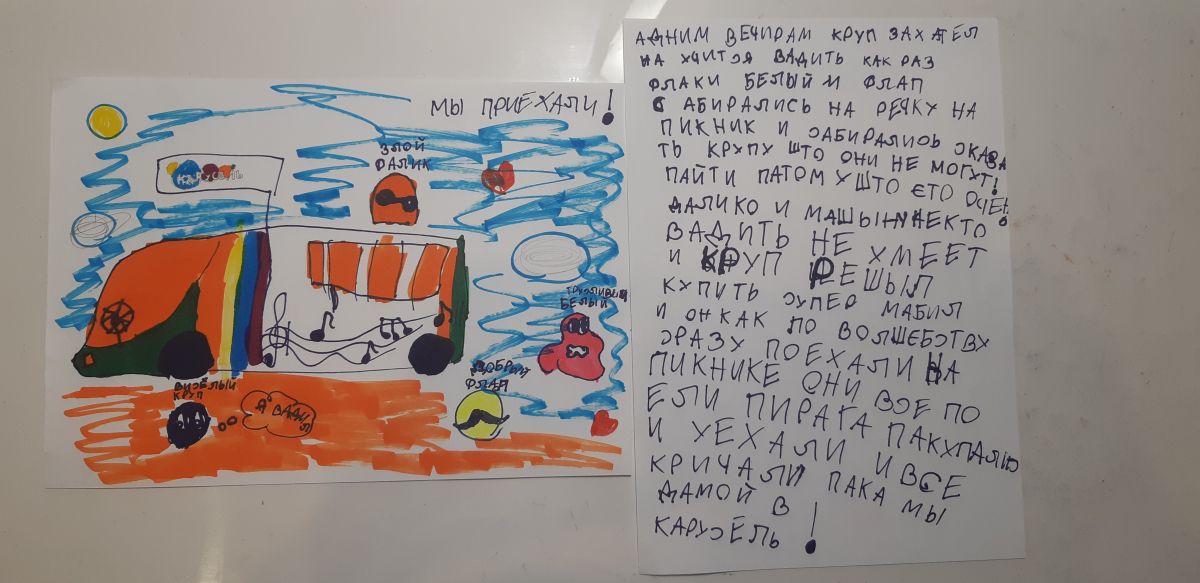 МЫ ПРИЕХАЛИ!
КАРУСЕЛЬ
ЗЛОЙ
ФАЛИК
ТРУСЛИВЫЙ
БЕЛЫЙ
ДОБРЫЙ
ФЛАП
ВИСЁЛЫЙ
КРУП
Я ВАДИЛ
АДНИМ ВЕЧИРАМ КРУП ЗАХАТЕЛ
НА УЧИТСЯ ВАДИТЬ КАК РАЗ
ФЛАКИ БЕЛЫЙ И ФЛАП
САБИРАЛИСЬ НА РЕЧКУ НА
ПИКНИК И САБИРАЛИСЬ СКАЗА
ТЬ КРУПУ ШТО ОНИ НЕ МОГУТ!
ПАЙТИ ПАТОМУ ШТО ЄТО ОЧЕН
ДАЛИКО И МАШЫНУ НЕКТО
ВАДИТЬ НЕ УМЕЕТ
И КРУП РЕШЫЛ
КУПИТЬ СУПЕР МАБИЛ
И ОН КАК ПО ВОЛШЕБСТВУ
СРАЗУ ПОЕХАЛИ НА
ПИКНИКЕ ОНИ ВСЕ ПО
ЕЛИ ПИРАГА ПАКУПАЛИС
И УЕХАЛИ И ВСЕ
КРИЧАЛИ ПАКА МЫ
ДАМОЙ В
КАРУСЕЛЬ !